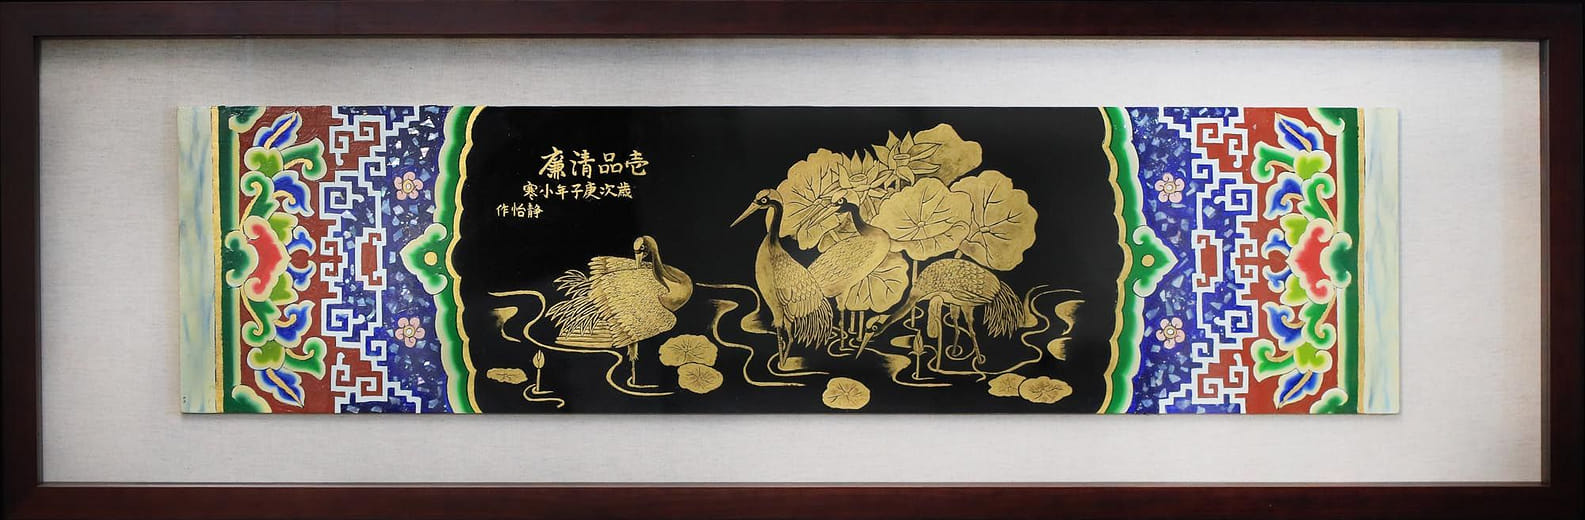 壱品清廉
歲次庚子年小寒
静怡作